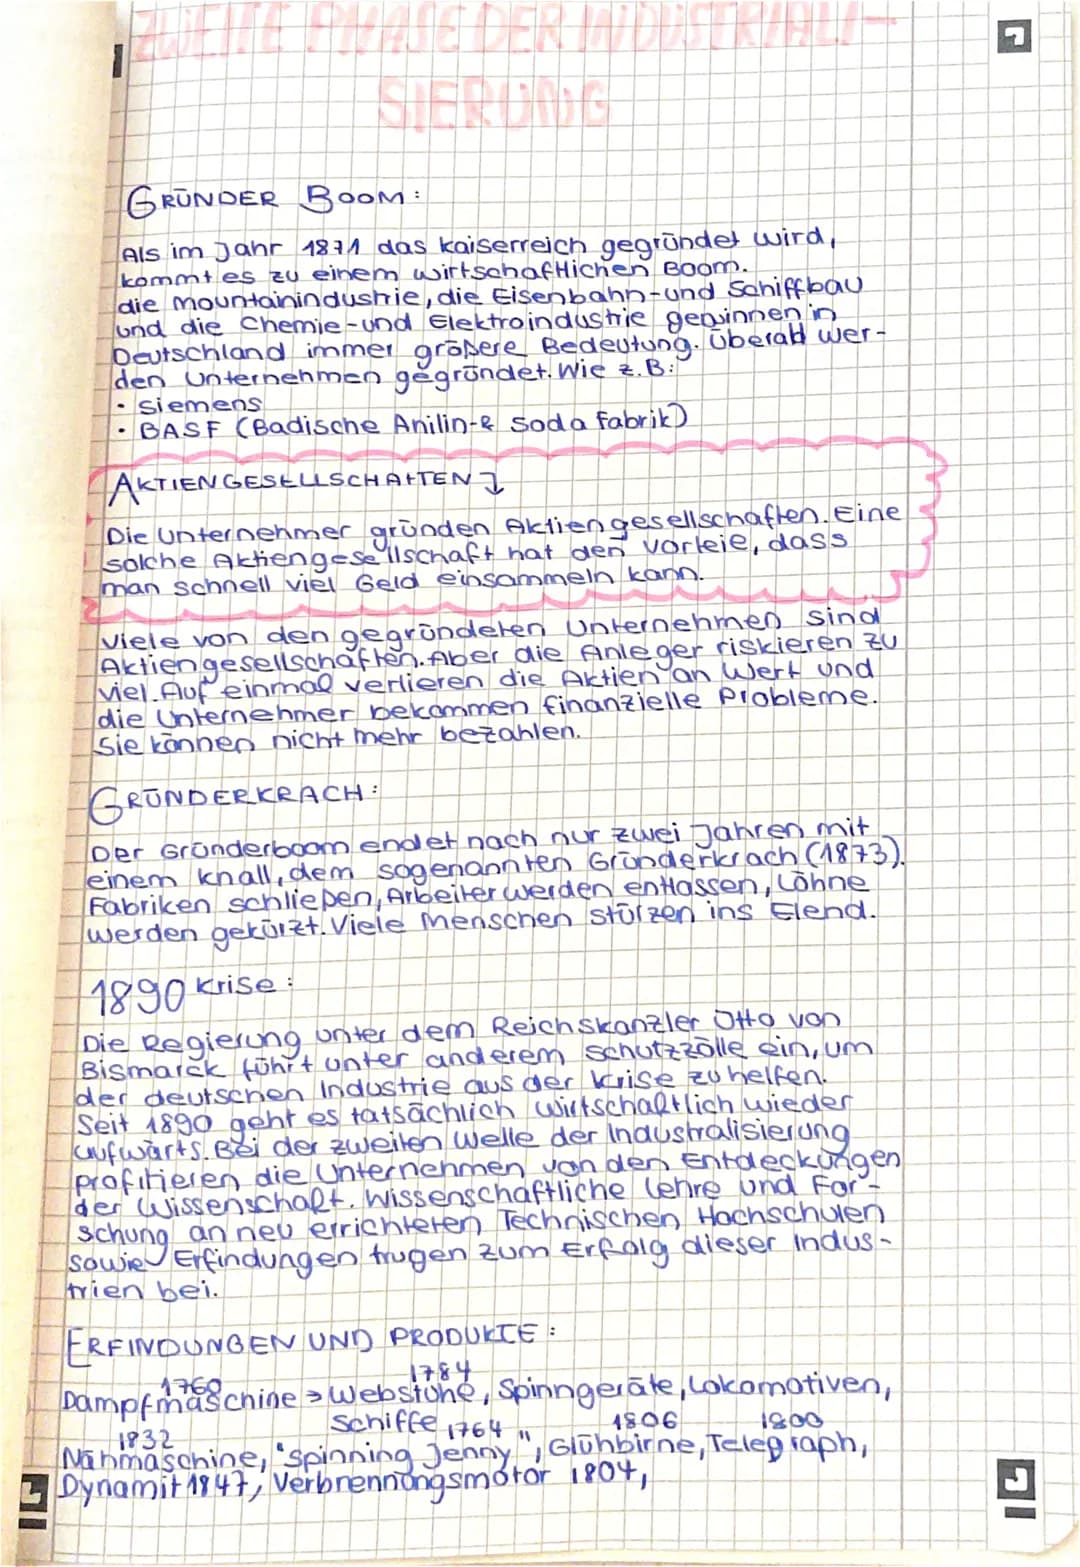 ZWEITE PHASE DER INDUSTRIALI-
SIERUNG
GRÜNDER BOOM:
Als im Jahr 1871 das Kaiserreich gegründet wird,
kommt es zu einem wirtschaftlichen Boom.
die Mountainindustrie, die Eisenbahn- und Schiffbau
und die Chemie- und Elektroindustrie gewinnen in
Deutschland immer größere Bedeutung. Überall wer-
den Unternehmen gegründet. Wie z.B:
• Siemens
• BASF (Badische Anilin- & Soda Fabrik)
AKTIENGESELLSCHAFTEN ↴
Die Unternehmer gründen Aktiengesellschaften. Eine
solche Aktiengesellschaft hat den vorleie, dass
man schnell viel Geld einsammeln kann.
Viele von den gegründeten Unternehmen sind
Aktiengesellschaften. Aber die Anleger riskieren zu
viel. Auf einmal verlieren die Aktien an Wert und
die Unternehmer bekommen finanzielle Probleme.
Sie können nicht mehr bezahlen.
GRÜNDERKRACH:
Der Gründerboom endet nach nur zwei Jahren mit
einem Knall, dem sogenannten Gründerkrach (1873).
Fabriken schließen, Arbeiter werden entlassen, Löhne
werden gekürzt. Viele Menschen stürzen ins Elend.
1890 Krise:
Die Regierung unter dem Reichskanzler Otto von
Bismarck führt unter anderem Schutzzölle ein, um
der deutschen Industrie aus der Krise zu helfen.
Seit 1890 geht es tatsächlich wirtschaftlich wieder
aufwärts. Bei der zweiten Welle der Industralisierung
profitieren die Unternehmen von den Entdeckungen
der Wissenschaft. Wissenschaftliche Lehre und For-
schung an neu errichteten Technischen Hochschulen
sowie Erfindungen trugen zum Erfolg dieser Indus-
trien bei.
ERFINDUNGEN UND PRODUKTE:
1769 1784
Dampfmaschine → Webstühe, Spinngeräte, Lokomotiven,
Schiffe 1764 1806 1800
1832
Nähmaschine, "Spinning Jenny", Glühbirne, Telegraph,
Dynamit 1847, Verbrennungsmotor 1804,